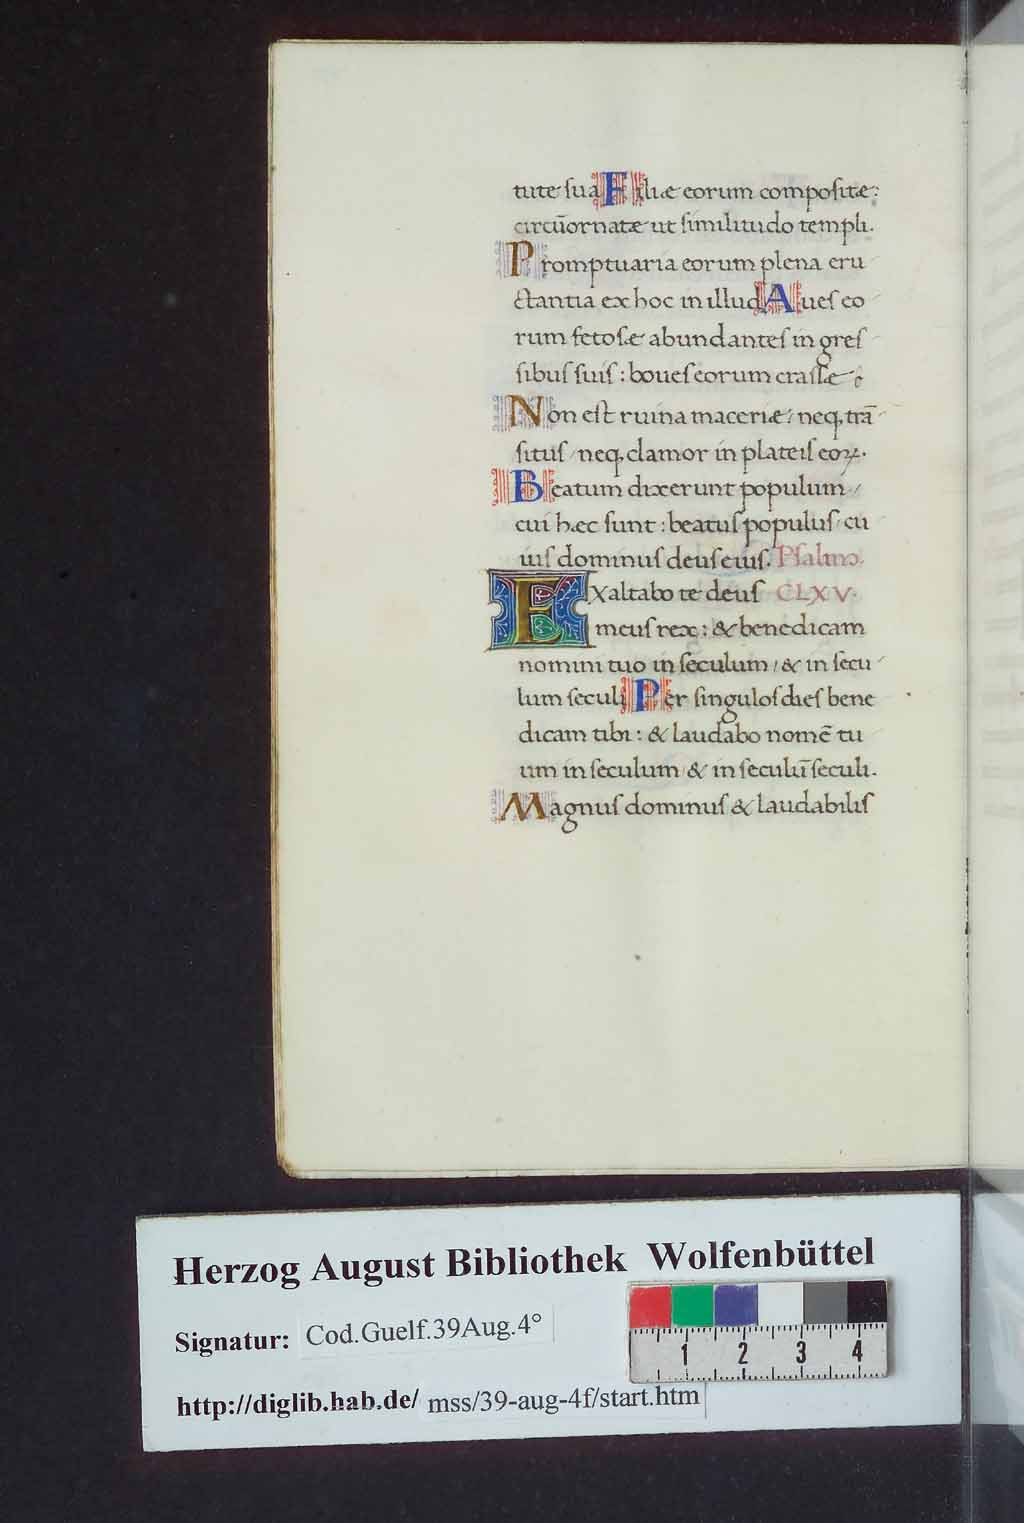 tute ſua Filiæ eorum compoſitæ:
circūornatæ ut ſimilitudo templi.
Promptuaria eorum plena eru
ctantia ex hoc in illud Aueſ eo
rum fetoſæ abundanteſ in greſ
ſibuſ ſuiſ : boueſ eorum craſſæ
Non eſt ruina maceriæ: neq; trā
ſituſ / neq; clamor in plateiſ eoꝝ.
Beatum dixerunt populum /
cui hæc ſunt : beatuſ populuſ / cu
iuſ dominuſ deuſ eiuſ. Pſalmo.
Exaltabo te deuſ CLXV.
meuſ rex : & benedicam
nomini tuo in ſeculum / & in ſecu
lum ſeculi Per ſinguloſ dieſ bene
dicam tibi : & laudabo nomē tu
um in ſeculum / & in ſeculū ſeculi.
Magnuſ dominuſ & laudabiliſ
Herzog August Bibliothek Wolfenbüttel
Signatur: Cod.Guelf.39Aug.4°
1 2 3 4
http://diglib.hab.de/ mss/39-aug-4f/start.htm